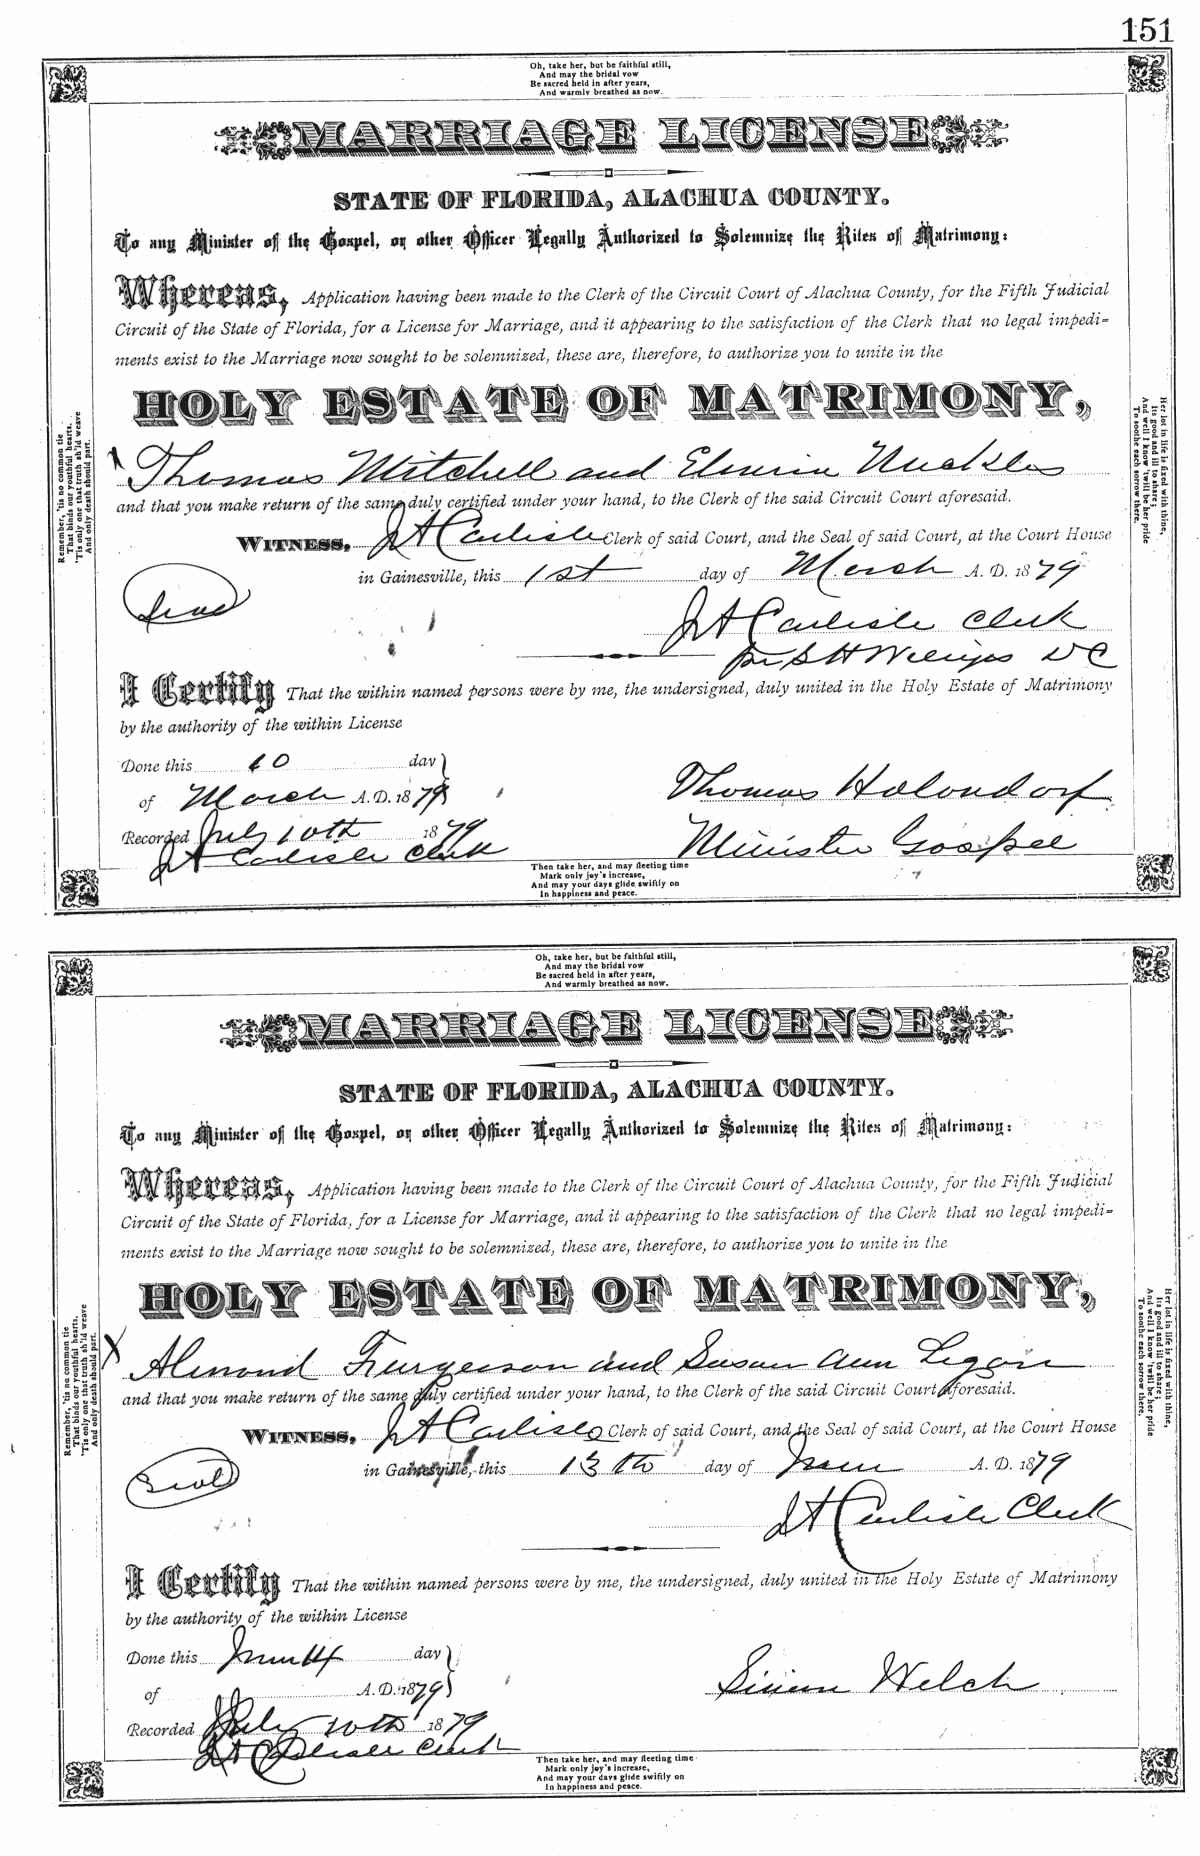 151
Oh, take her, but be faithful still,
And may the bridal vow
Be sacred held in after years,
And warmly breathed as now.
MARRIAGE LICENSE
STATE OF FLORIDA, ALACHUA COUNTY.
To any Minister of the Gospel, or other Officer Legally Authorized to Solemnize the Rites of Matrimony:
Whereas, Application having been made to the Clerk of the Circuit Court of Alachua County, for the Fifth Judicial
Circuit of the State of Florida, for a License for Marriage, and it appearing to the satisfaction of the Clerk that no legal impedi-
ments exist to the Marriage now sought to be solemnized, these are, therefore, to authorize you to unite in the
HOLY ESTATE OF MATRIMONY,
Remember, 'tis no common tie
That binds our youthful hearts.
'Tis only one that truth sh'ld weave
And only death should part.
Her lot in life is fixed with thine,
Its good and ill to share;
And well I know 'twill be her pride
To soothe each sorrow there.
X Thomas Mitchell and Elmira Nuckles
and that you make return of the same duly certified under your hand, to the Clerk of the said Circuit Court aforesaid.
WITNESS, J A Carlisle Clerk of said Court, and the Seal of said Court, at the Court House
in Gainesville, this 1st day of March A. D. 1879
Seal
J A Carlisle Clerk
per S H Wienges DC
I Certify That the within named persons were by me, the undersigned, duly united in the Holy Estate of Matrimony
by the authority of the within License
Done this 10 day
of March A. D. 1879
Thomas Holondorf
Recorded July 10th 1879
Minister Gospel
J A Carlisle Clerk
Then take her, and may fleeting time
Mark only joy's increase,
And may your days glide swiftly on
In happiness and peace.
Oh, take her, but be faithful still,
And may the bridal vow
Be sacred held in after years,
And warmly breathed as now.
MARRIAGE LICENSE
STATE OF FLORIDA, ALACHUA COUNTY.
To any Minister of the Gospel, or other Officer Legally Authorized to Solemnize the Rites of Matrimony:
Whereas, Application having been made to the Clerk of the Circuit Court of Alachua County, for the Fifth Judicial
Circuit of the State of Florida, for a License for Marriage, and it appearing to the satisfaction of the Clerk that no legal impedi-
ments exist to the Marriage now sought to be solemnized, these are, therefore, to authorize you to unite in the
HOLY ESTATE OF MATRIMONY,
Remember, 'tis no common tie
That binds our youthful hearts.
'Tis only one that truth sh'ld weave
And only death should part.
Her lot in life is fixed with thine,
Its good and ill to share;
And well I know 'twill be her pride
To soothe each sorrow there.
X Almond Furgerson and Susan Ann Ligon
and that you make return of the same duly certified under your hand, to the Clerk of the said Circuit Court aforesaid.
WITNESS, J A Carlisle Clerk of said Court, and the Seal of said Court, at the Court House
in Gainesville, this 13th day of June A. D. 1879
Seal
J A Carlisle Clerk
I Certify That the within named persons were by me, the undersigned, duly united in the Holy Estate of Matrimony
by the authority of the within License
Done this June 14 day
of A. D. 1879
Simon Welch
Recorded July 10th 1879
J A Carlisle Clerk
Then take her, and may fleeting time
Mark only joy's increase,
And may your days glide swiftly on
In happiness and peace.